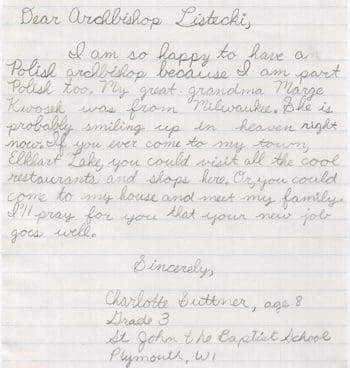 Dear Archbishop Listecki,
I am so happy to have a
Polish archbishop because I am part
Polish too. My great grandma Marge
Kwosek was from Milwaukee. She is
probably smiling up in heaven right
now. If you ever come to my town,
Elkhart Lake, you could visit all the cool
restaurants and shops here. Or, you could
come to my house and meet my family.
I'll pray for you that your new job
goes well.
Sincerely,
Charlotte Suttner, age 8
Grade 3
St John the Baptist School
Plymouth, WI